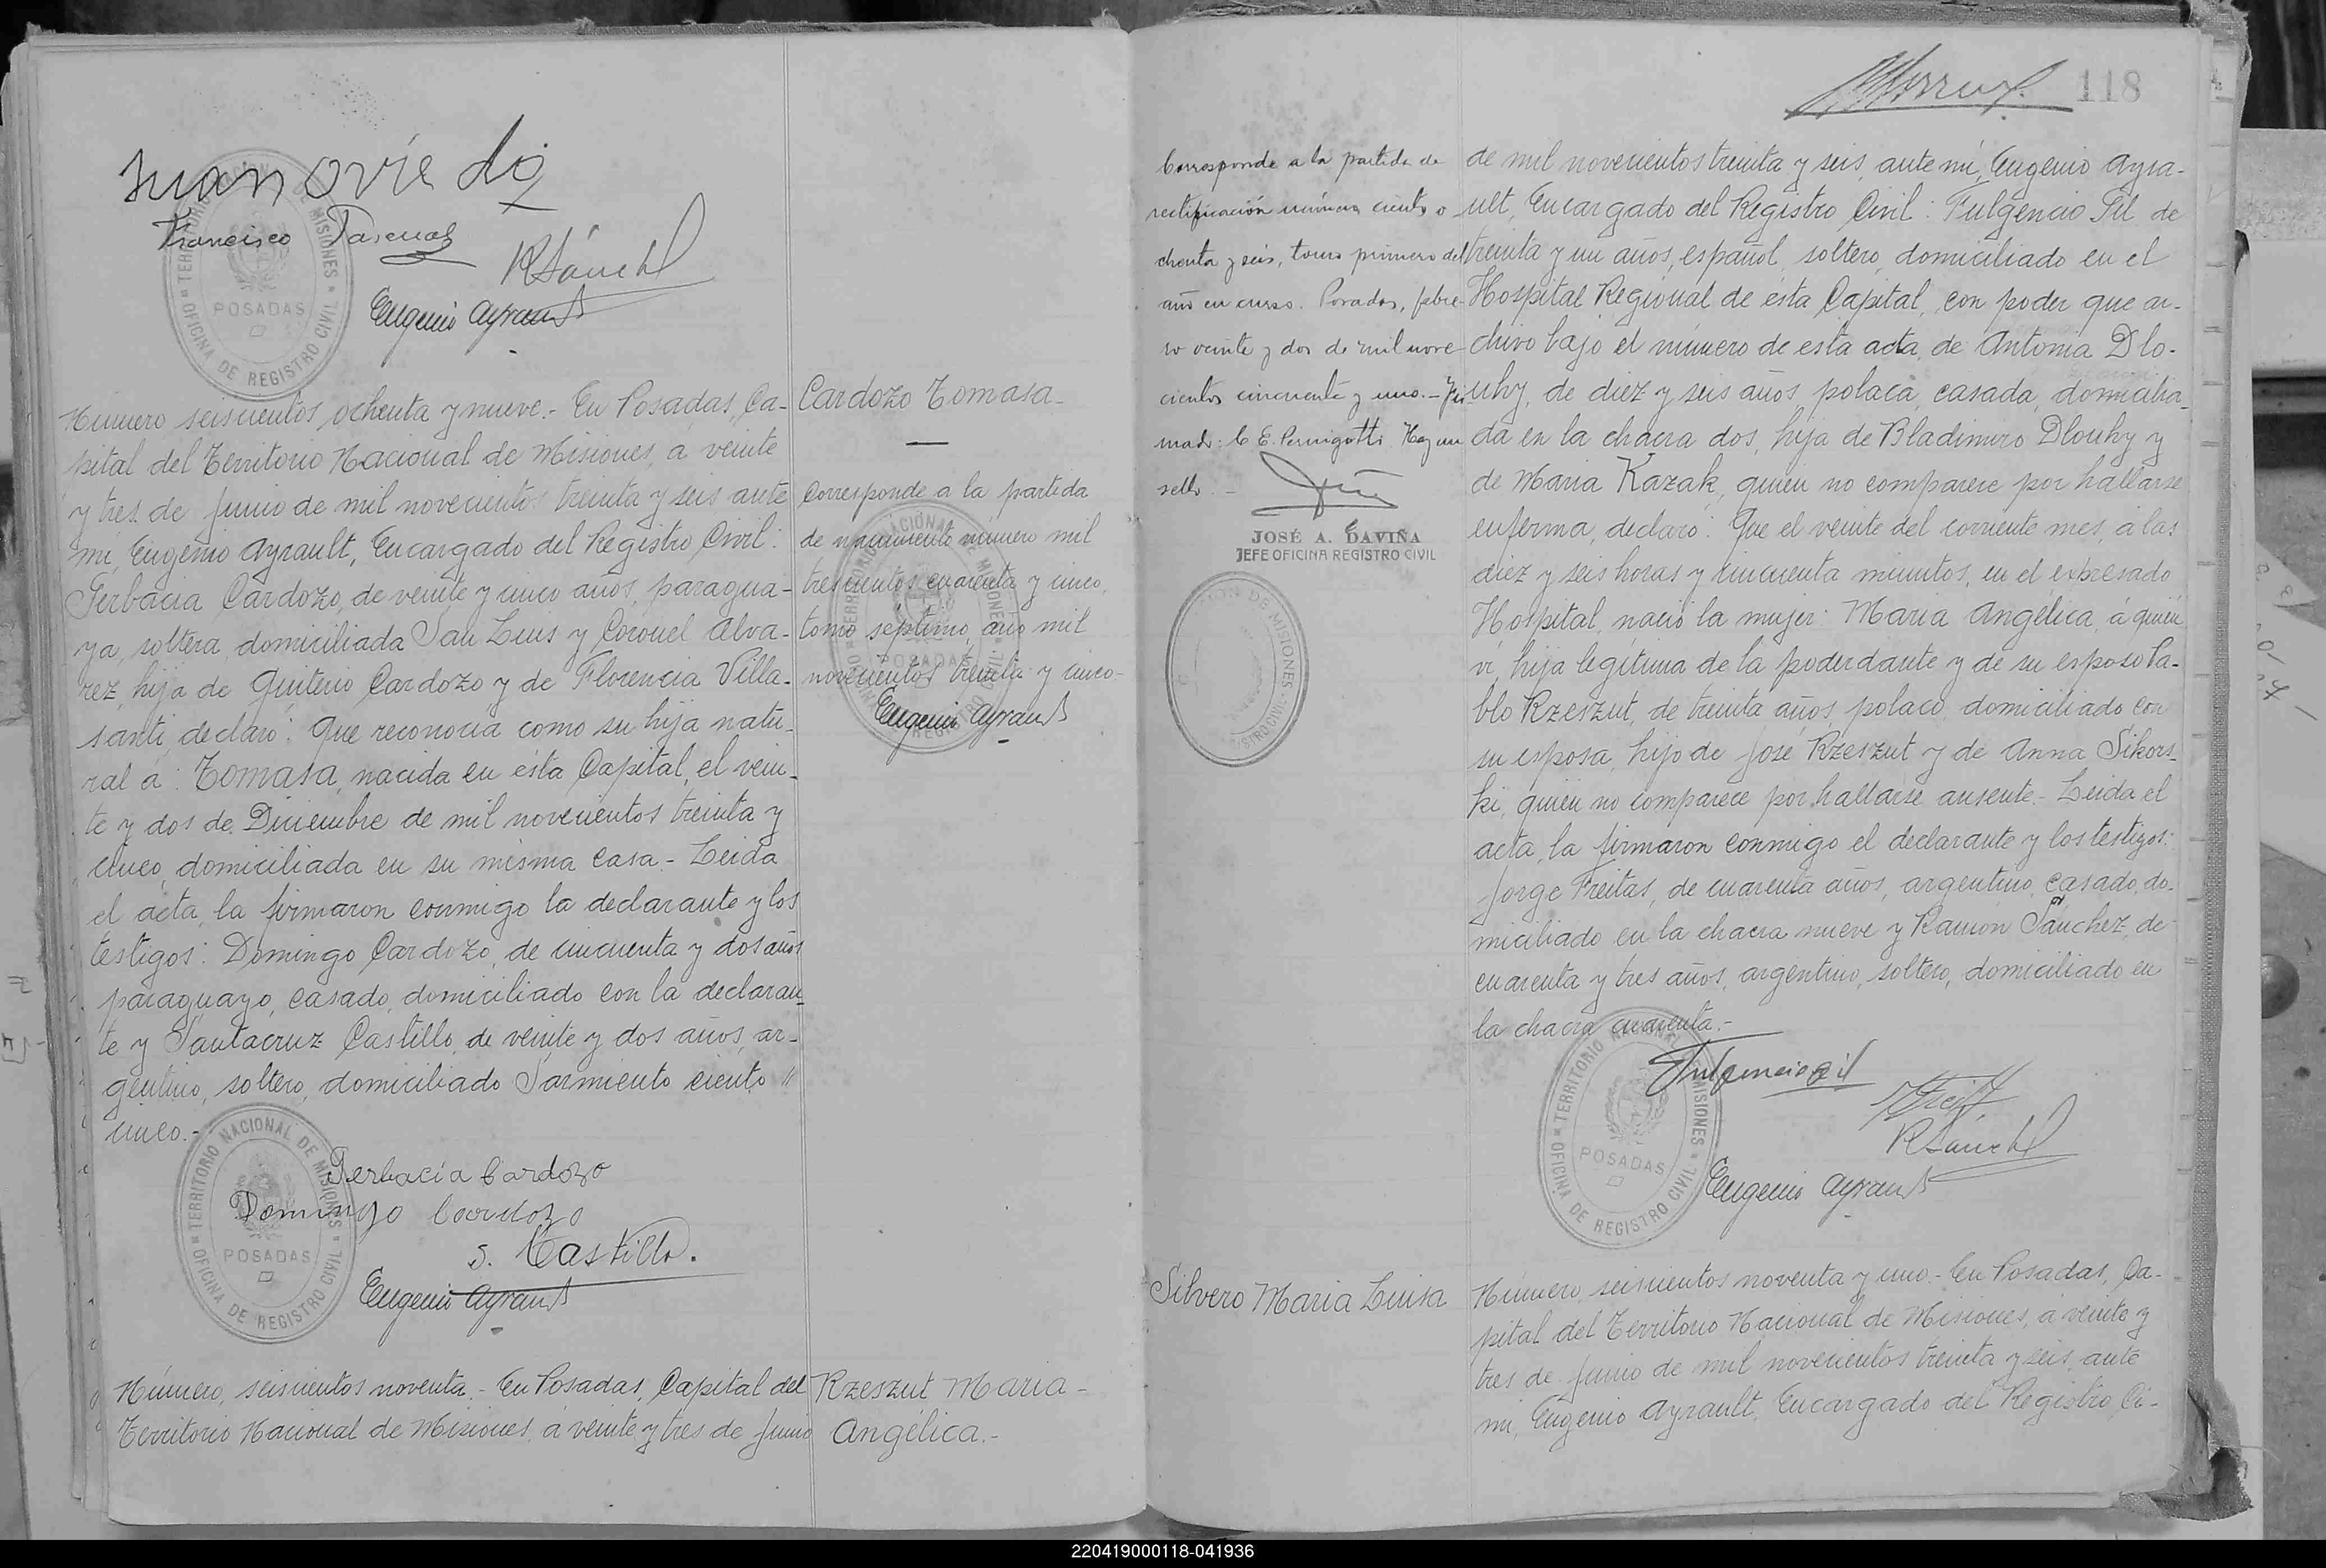 Juan Oviedo
Francisco Pascual
RSánchez
Eugenio Ayrault
TERRITORIO NACIONAL DE MISIONES
POSADAS
OFICINA DE REGISTRO CIVIL
Número seiscientos ochenta y nueve.- En Posadas, Ca-
pital del Territorio Nacional de Misiones, a veinte
y tres de Junio de mil novecientos treinta y seis ante
mi, Eugenio Ayrault, Encargado del Registro Civil:
Gerbacia Cardozo, de veinte y cinco años, paragua-
ya, soltera, domiciliada San Luis y Coronel Alva-
rez, hija de Quiterio Cardozo y de Florencia Villa-
santi, declaró: Que reconocía como su hija natu-
ral á: Tomasa, nacida en esta Capital, el vein-
te y dos de Diciembre de mil novecientos treinta y
cinco, domiciliada en su misma casa.- Leida
el acta, la firmaron conmigo la declarante y los
testigos: Domingo Cardozo, de cincuenta y dos años
paraguayo, casado, domiciliado con la declaran-
te y Santacruz Castillo, de veinte y dos años, ar-
gentino, soltero, domiciliado Sarmiento ciento "
cinco.-
Gerbacia Cardozo
Domingo Cardozo
S. Castillo.
Eugenio Ayrault
TERRITORIO NACIONAL DE MISIONES
POSADAS
OFICINA DE REGISTRO CIVIL
Número, seiscientos noventa.- En Posadas, Capital del
Territorio Nacional de Misiones, a veinte y tres de Junio
Cardozo Tomasa-
Corresponde a la partida
de nacimiento número mil
trescientos cuarenta y cinco,
tomo séptimo, año mil
novecientos treinta y cinco-
Eugenio Ayrault
Rzeszut Maria-
Angélica.-
118
Corresponde a la partida de
rectificación número ciento o
chenta y seis, tomo primero del
año en curso. Posadas, febre-
ro veinte y dos de mil nove-
cientos cincuenta y uno.- Fir
mado: C. E. Pernigotti. Hay un
sello.-
JOSÉ A. DAVIÑA
JEFE OFICINA REGISTRO CIVIL
de mil novecientos treinta y seis, ante mi, Eugenio Ayra-
ult, Encargado del Registro Civil: Fulgencio Gil de
treinta y un años, español, soltero, domiciliado en el
Hospital Regional de esta Capital, con poder que ar-
chivo bajo el número de esta acta, de Antonia Dlo-
uhy, de diez y seis años, polaca, casada, domicilia-
da en la chacra dos, hija de Bladimiro Dlouhy y
de Maria Kazak, quien no comparece por hallarse
enferma, declaró: Que el veinte del corriente mes, a las
diez y seis horas y cincuenta minutos, en el expresado
Hospital, nació la mujer: Maria Angélica, á quien
vi, hija legitima de la poderdante y de su esposo Pa-
blo Rzeszut, de treinta años, polaco, domiciliado con
su esposa, hijo de José Rzeszut y de Anna Sikors-
ki, quien no comparece por hallarse ausente.- Leida el
acta, la firmaron conmigo el declarante y los testigos:
Jorge Freitas, de cuarenta años, argentino, casado, do-
miciliado en la chacra nueve y Ramon Sanchez, de
cuarenta y tres años, argentino, soltero, domiciliado en
la chacra cuarenta.-
Fulgencio Gil
RSánchez
Eugenio Ayrault
TERRITORIO NACIONAL DE MISIONES
POSADAS
OFICINA DE REGISTRO CIVIL
Silvero Maria Luisa
Número, seiscientos noventa y uno.- En Posadas, Ca-
pital del Territorio Nacional de Misiones, a veinte y
tres de Junio de mil novecientos treinta y seis, ante
mi, Eugenio Ayrault, Encargado del Registro Ci-
220419000118-041936